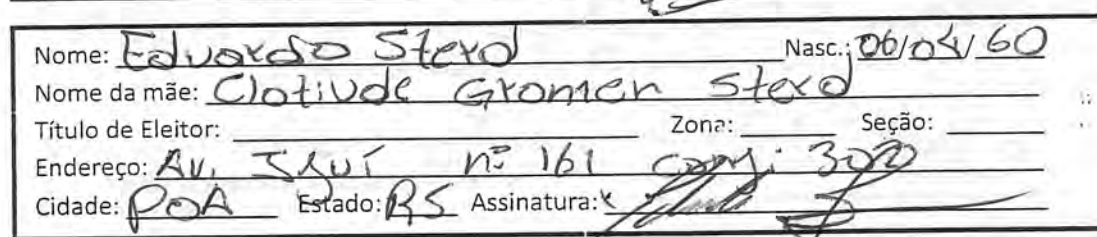 Nome: Eduardo Sterd Nasc.: 06/04/60
Nome da mãe: Clotiude Gromen Sterd
Título de Eleitor: Zona: Seção:
Endereço: Av. Ijuí nº 161 conj: 302
Cidade: POA Estado: RS Assinatura: x